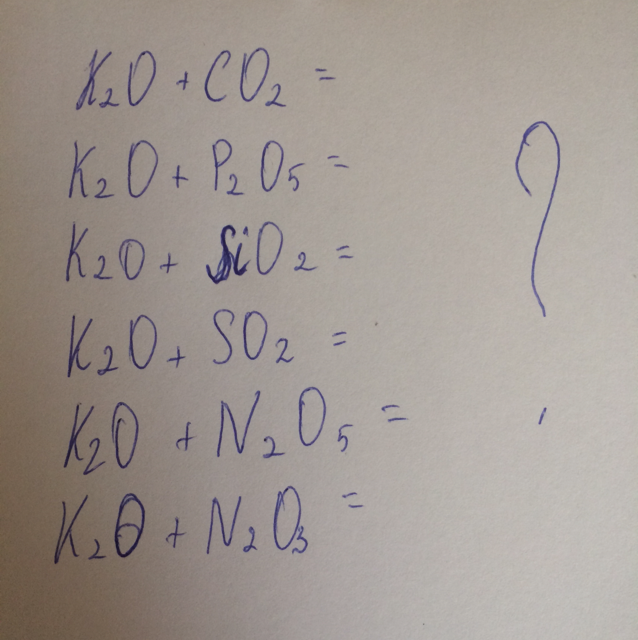 K₂O + CO₂ =
K₂O + P₂O₅ =
K₂O + SiO₂ =
K₂O + SO₂ =
K₂O + N₂O₅ =
K₂O + N₂O₃ =
?